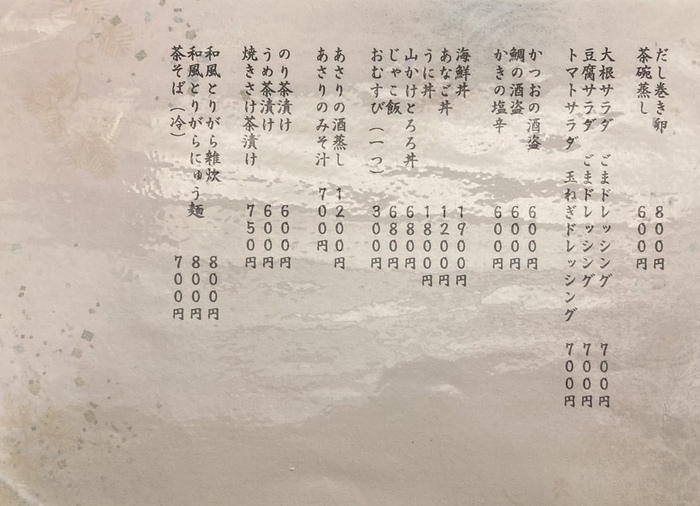 だし巻き卵 800円
茶碗蒸し 600円
大根サラダ ごまドレッシング 700円
豆腐サラダ ごまドレッシング 700円
トマトサラダ 玉ねぎドレッシング 700円
かつおの酒盗 600円
鯛の酒盗 600円
かきの塩辛 600円
海鮮丼 1900円
あなご丼 1200円
うに丼 1800円
山かけとろろ丼 680円
じゃこ飯 680円
おむすび(一つ) 300円
あさりの酒蒸し 1200円
あさりのみそ汁 700円
のり茶漬け 600円
うめ茶漬け 600円
焼きさけ茶漬け 750円
和風とりがら雑炊 800円
和風とりがらにゅう麺 800円
茶そば(冷) 700円